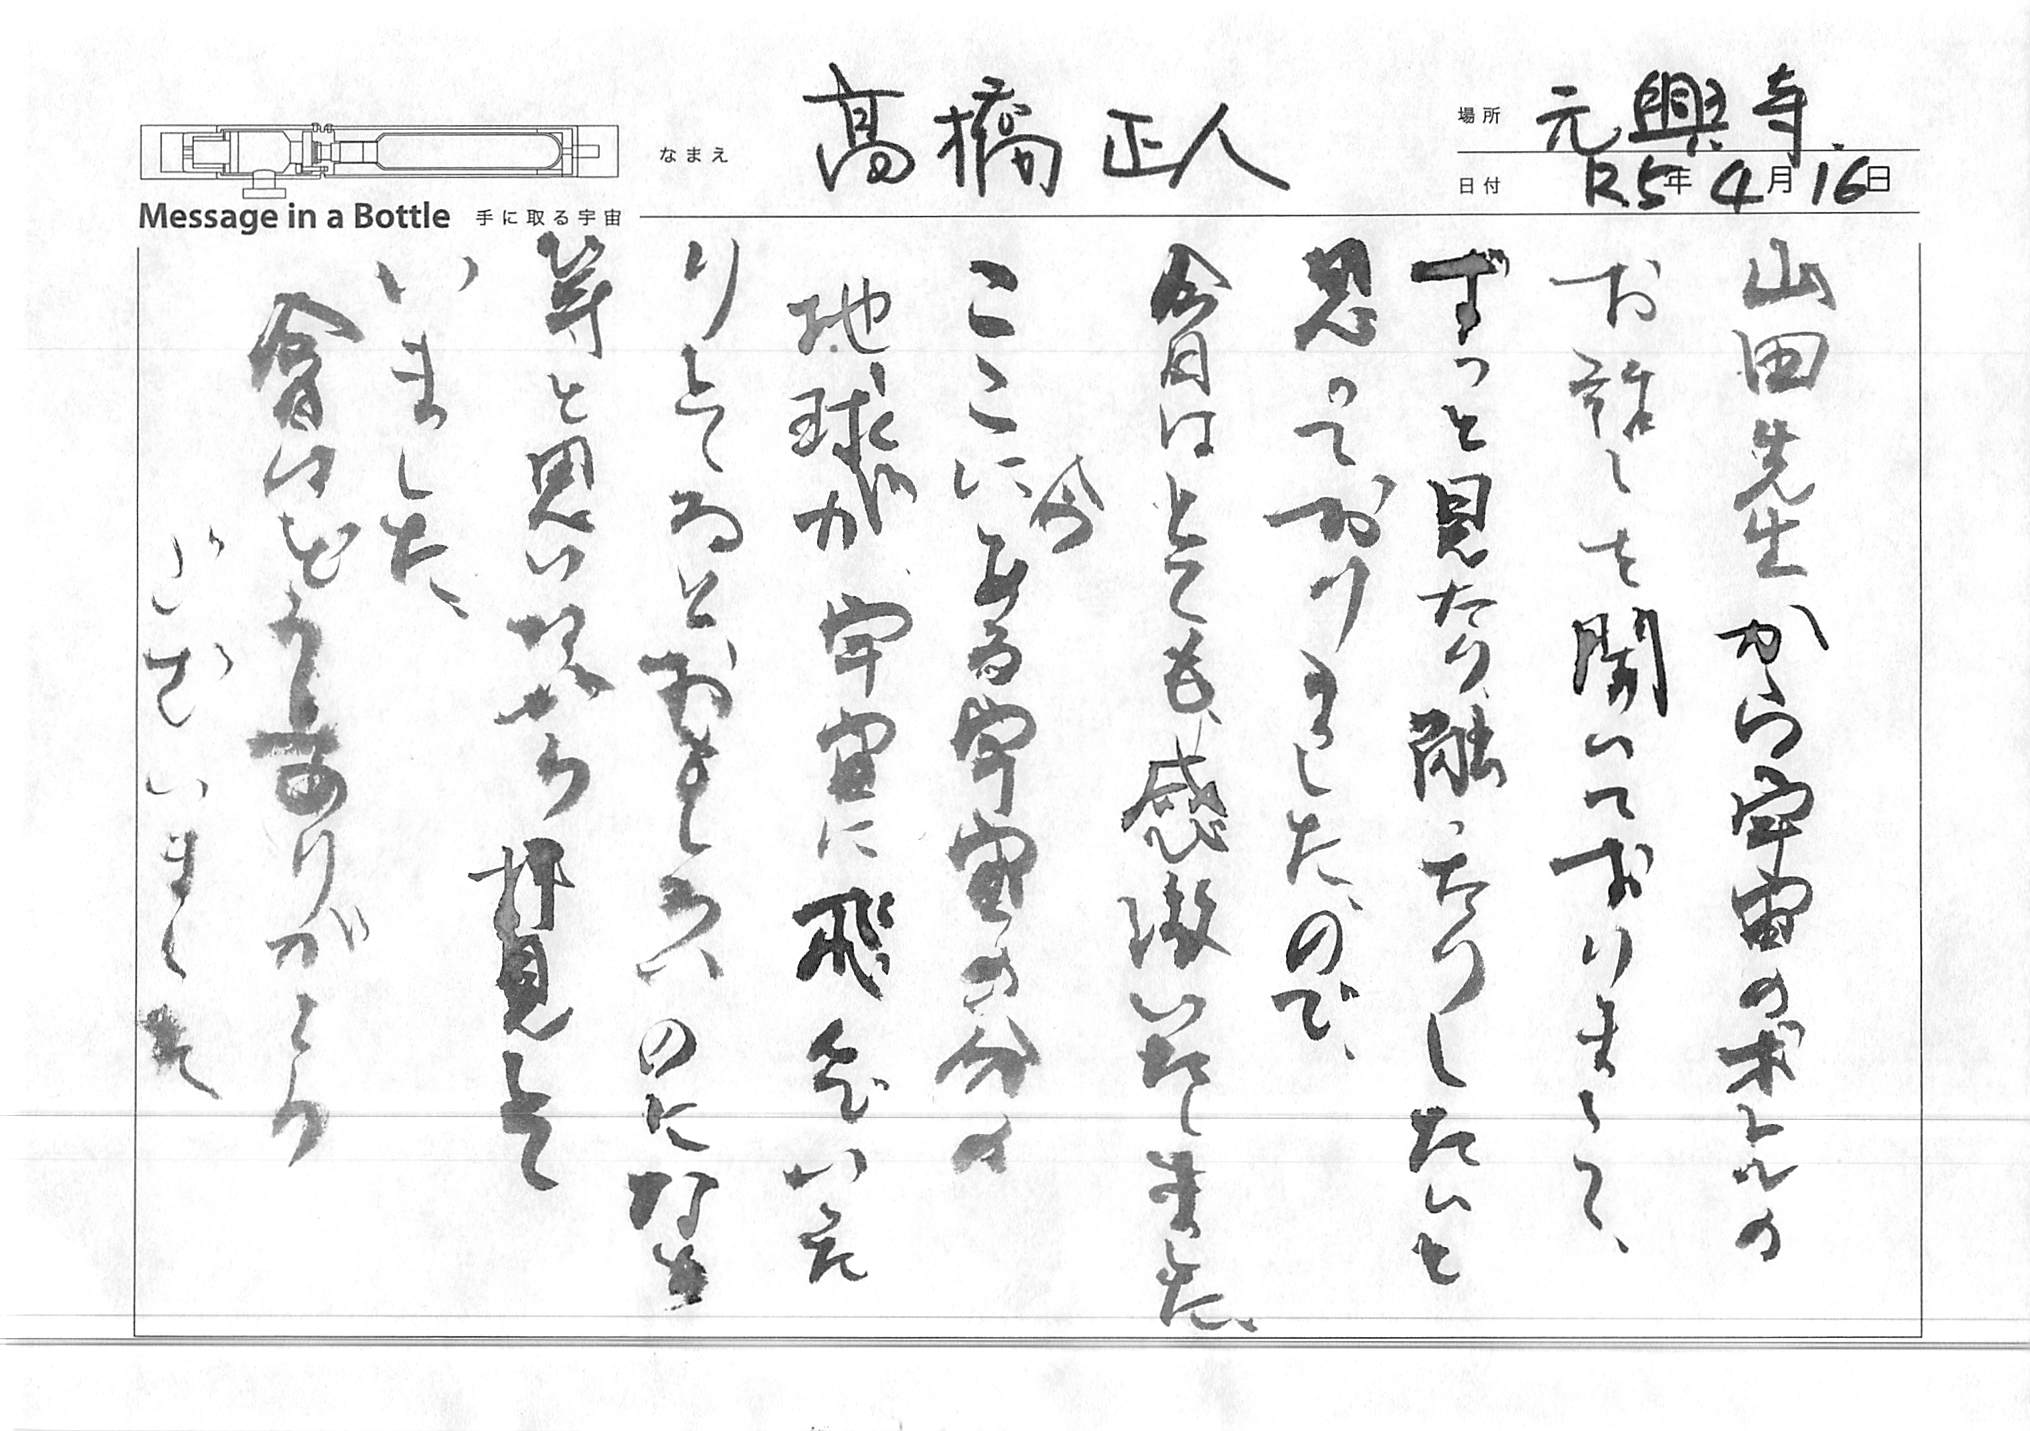 なまえ 髙橋正人
場所 元興寺.
日付 R5年4月16日
Message in a Bottle 手に取る宇宙
山田先生から宇宙のボトルの
お話しを聞いておりまして、
ずっと見たり、融ったりしたいと
思っておりました、ので、
今日はとても、感激いたしました、
ここにある宇宙の分
地球が、宇宙に飛んでいた
りしてるとおもしろいのになぁ
等と思いながら拝見して
いました、
会をありがとう
ございました